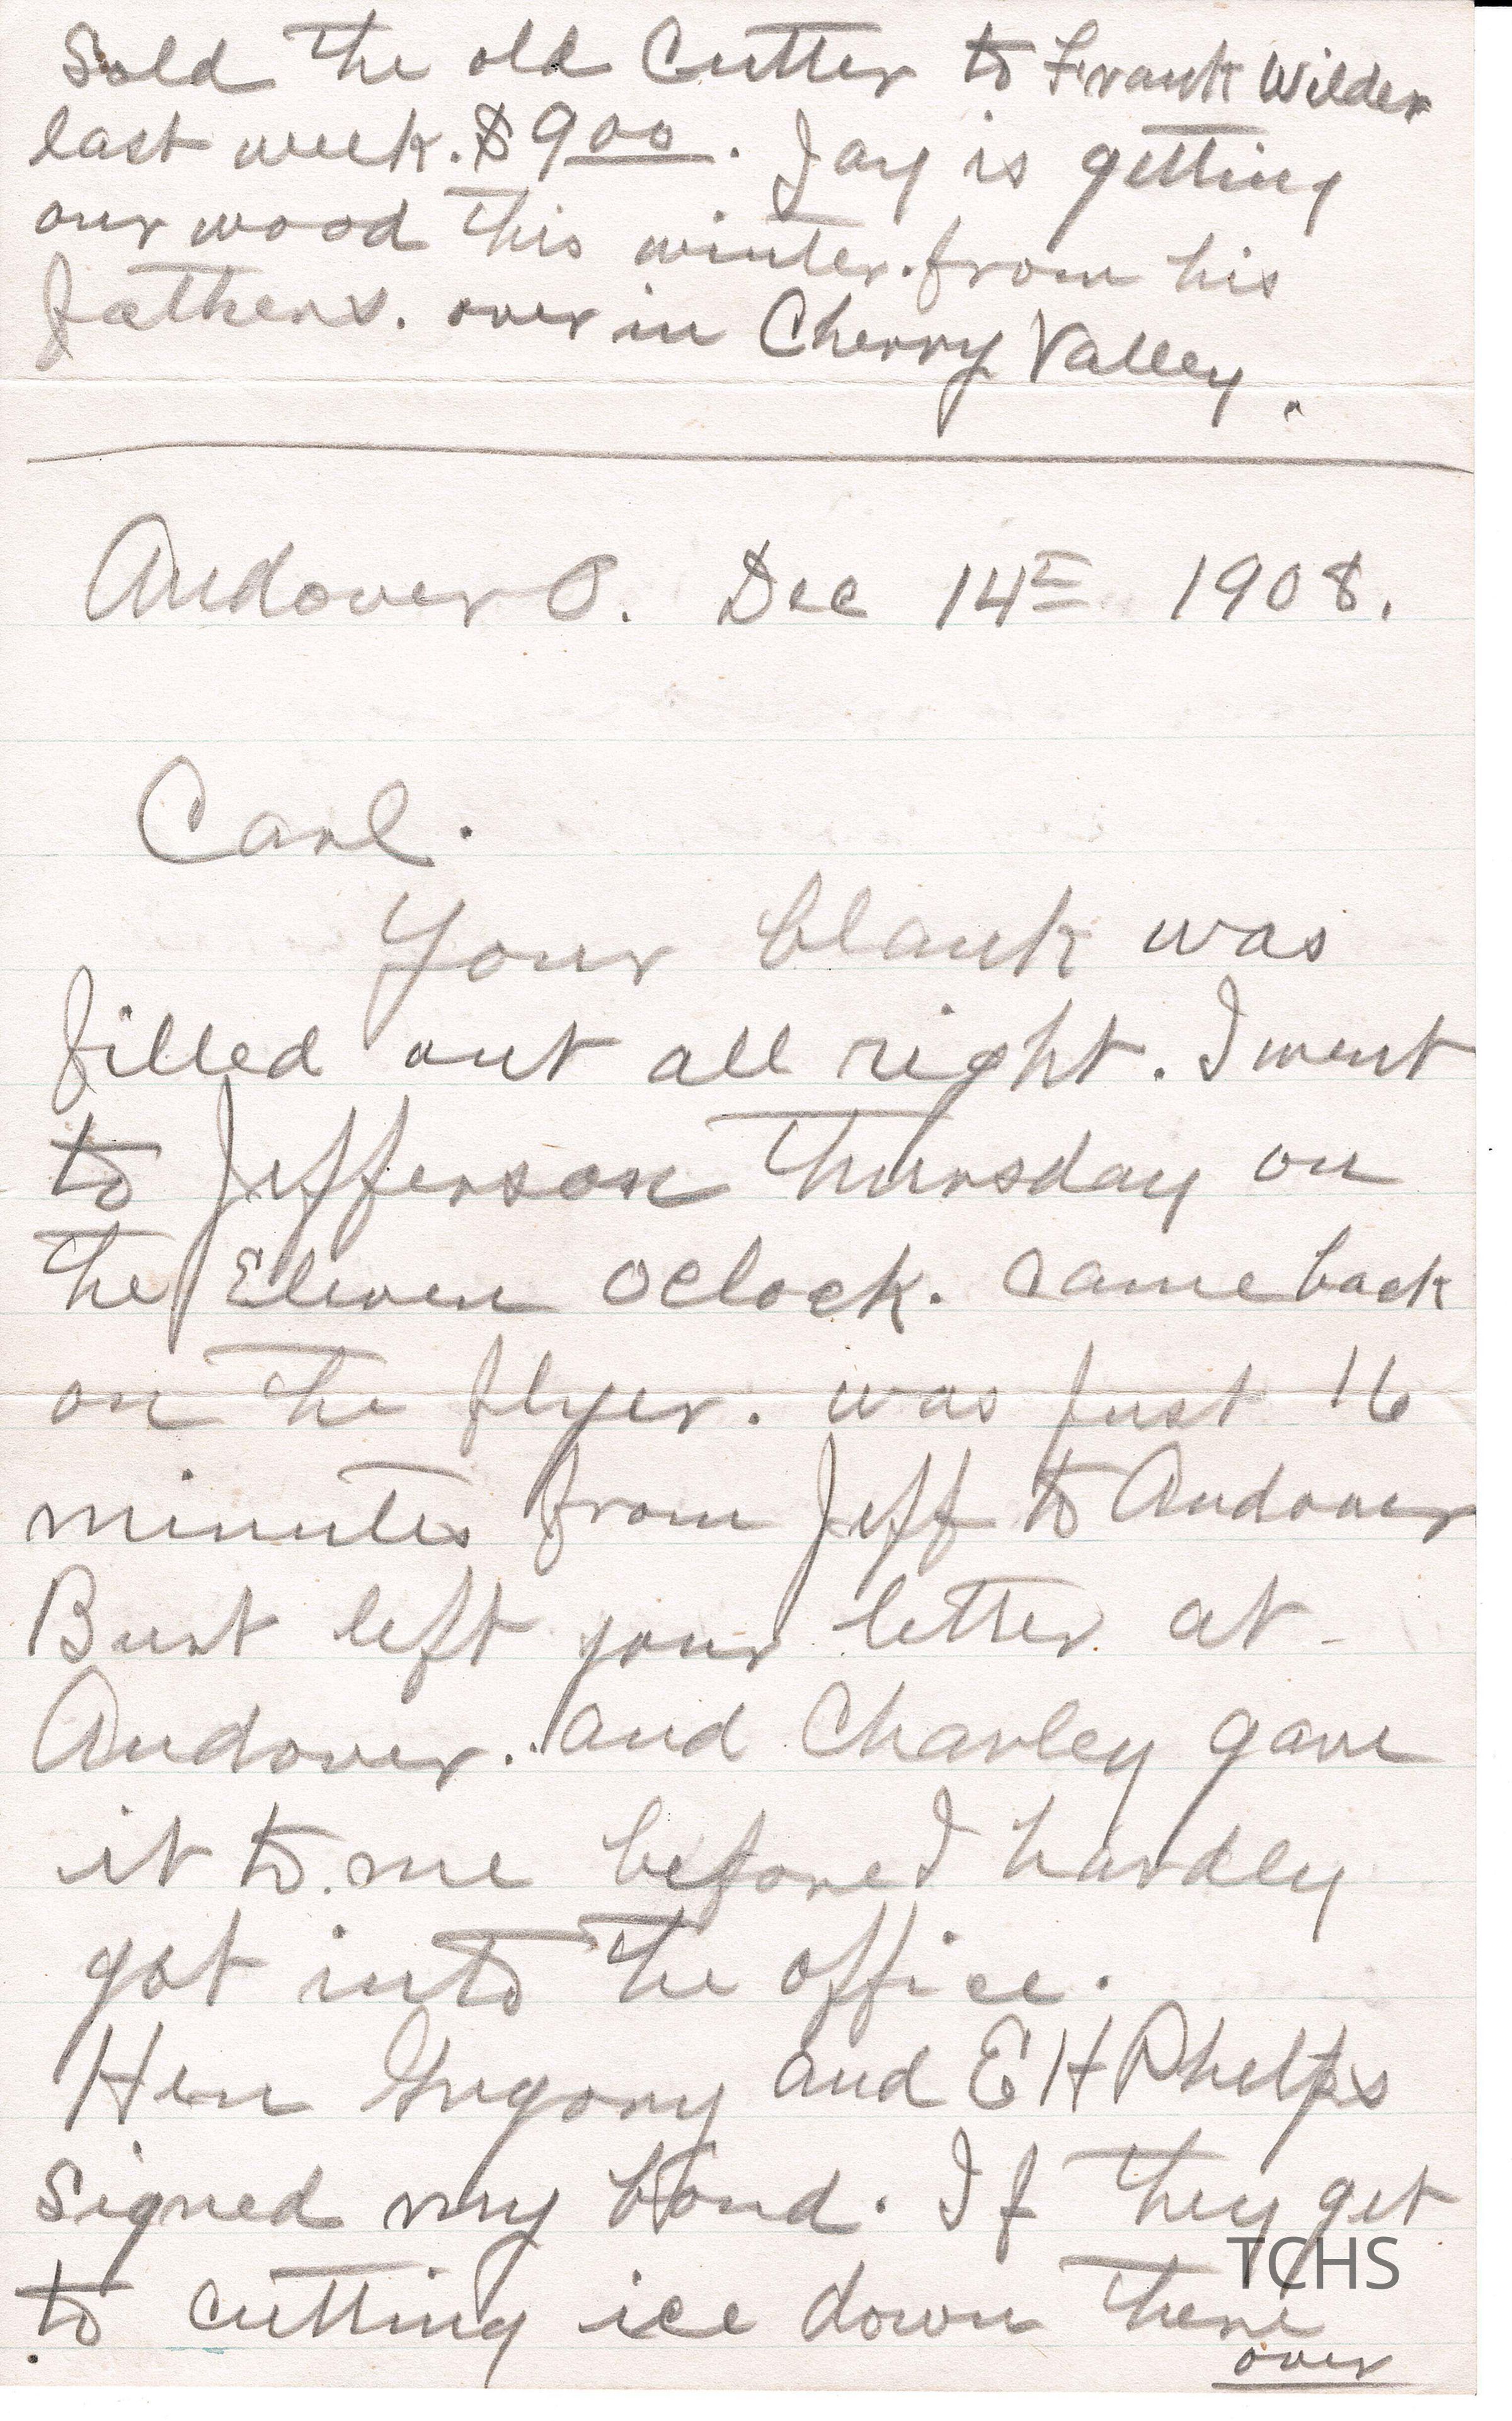 Sold the old Cutter to Frank Wilder
last week. $9 00. Jay is getting
our wood this winter. from his
fathers. over in Cherry Valley.
Andover O. Dec 14th 1908.
Carl.
Your blank was
filled out all right. I went
to Jefferson Thursday on
the Eleven oclock. came back
on the flyer. was just 16
minutes from Jeff to Andover
Burt left your letter at
Andover. and Charley gave
it to me before I hardly
got into the office.
Hen Gregory and E H Phelps
signed my bond. If they get
to cutting ice down there
over
TCHS